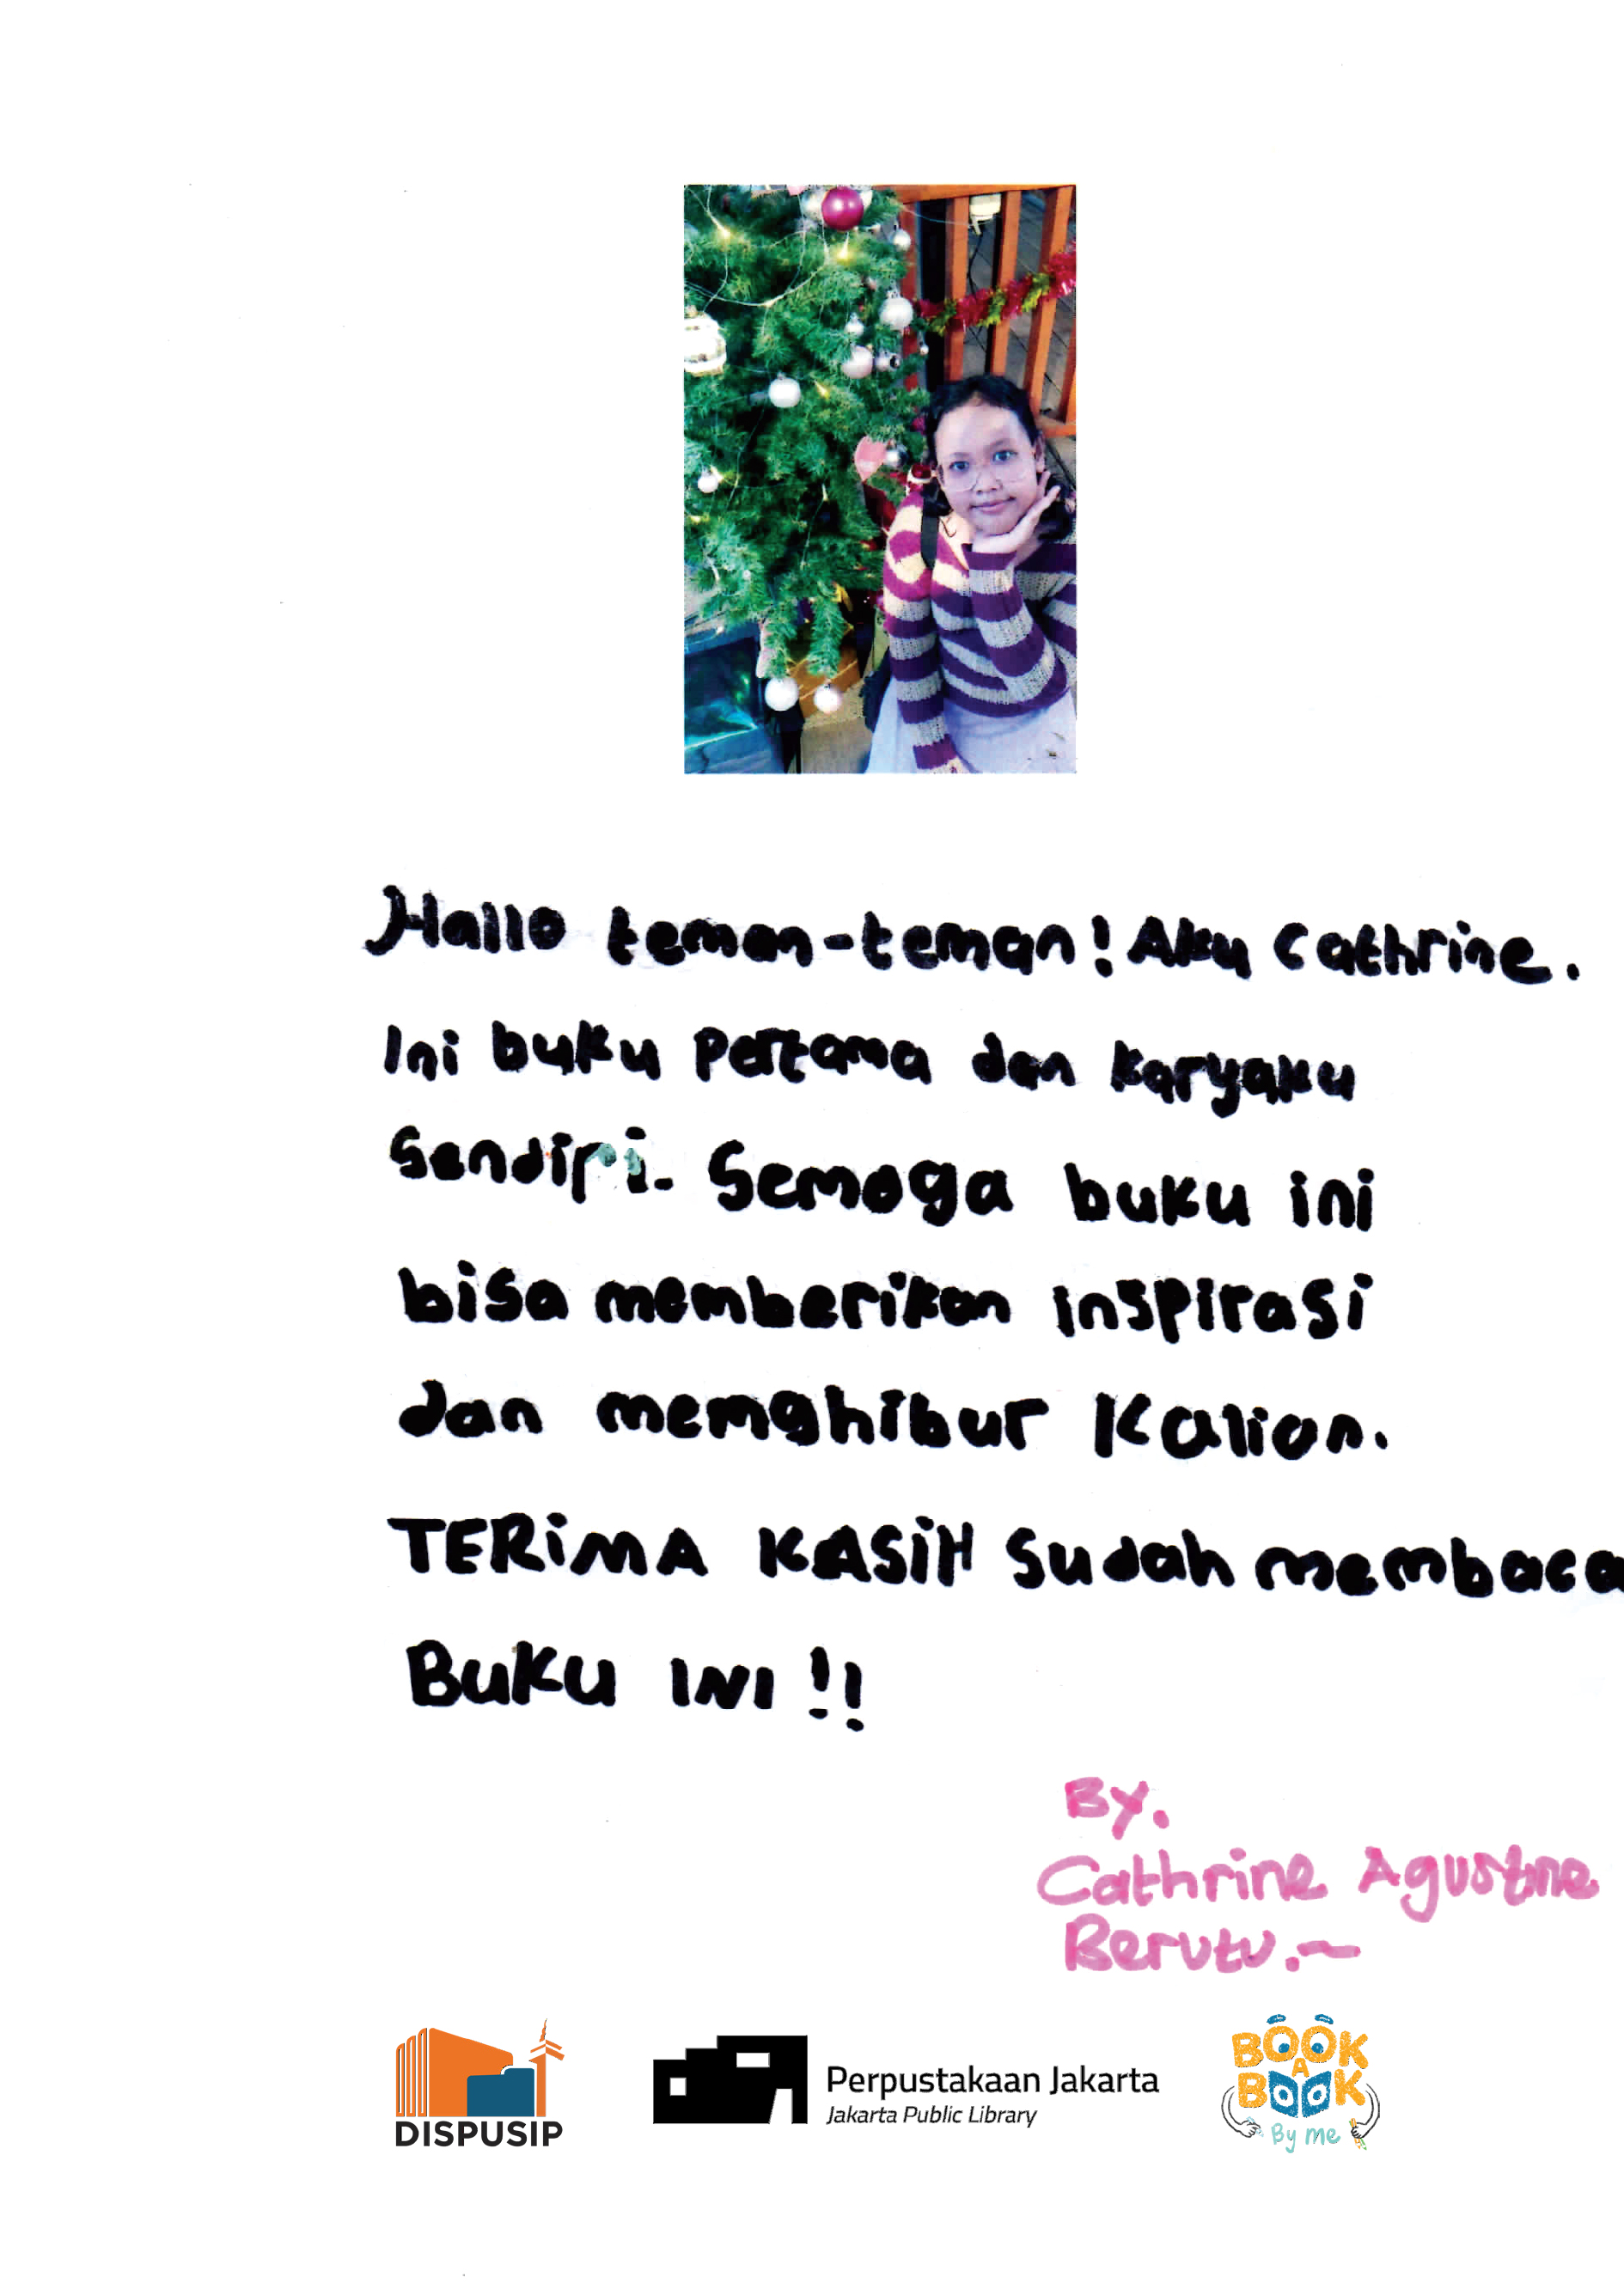 Hallo teman-teman! Aku Cathrine.
Ini buku Pertama dan karyaku
Sendiri. Semoga buku ini
bisa memberikan inspirasi
dan menghibur Kalian.
TERiMA KASiH Sudah membaca
BUKU INI !!
By.
Cathrine Agustine
Berutu.~
DISPUSIP
Perpustakaan Jakarta
Jakarta Public Library
BOOK
A
BOOK
By me